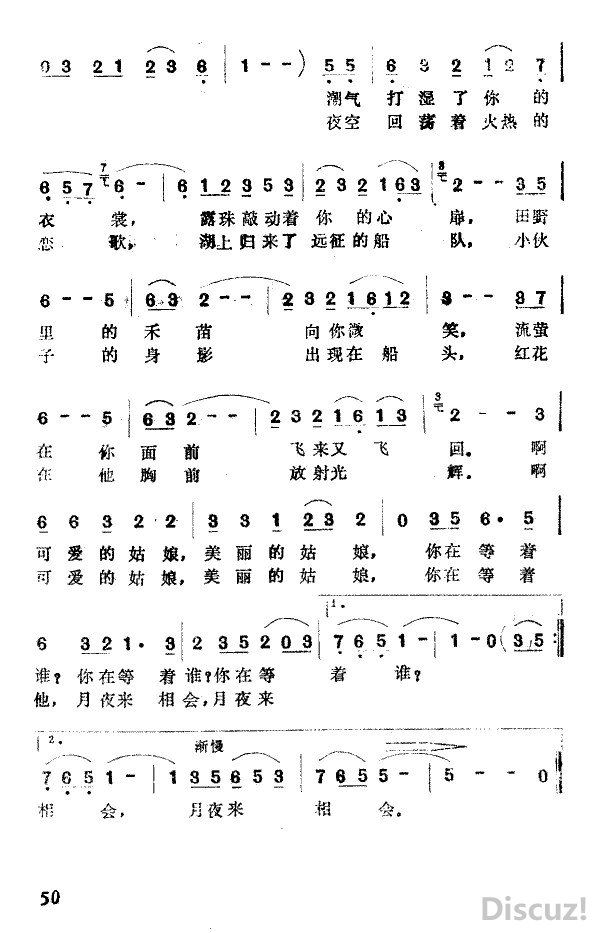 0 3 2 1 2 3 6 | 1 - - ) 5 5 | 6 3 2 1 2 7 |
潮气 打湿了你的
夜空 回荡着火热的
6 5 7 6 - | 6 1 2 3 5 3 | 2 3 2 1 6 3 | 2 - - 3 5 |
衣 裳， 露珠敲动着 你 的心 扉， 田野
恋 歌， 湖上归来了 远征的船 队， 小伙
6 - - 5 | 6 3 2 - - | 2 3 2 1 6 1 2 | 3 - - 3 7 |
里 的 禾 苗 向你微 笑， 流萤
子 的 身 影 出现在 船 头， 红花
6 - - 5 | 6 3 2 - - | 2 3 2 1 6 1 3 | 2 - - 3 |
在 你 面 前 飞来又 飞 回。 啊
在 他 胸 前 放射光 辉。 啊
6 6 3 2 2 2 | 3 3 1 2 3 2 | 0 3 5 6 · 5 |
可爱的姑娘，美丽的姑 娘， 你在等着
可爱的姑娘，美丽的姑 娘， 你在等着
1.
6 3 2 1 · 3 | 2 3 5 2 0 3 | 7 6 5 1 - | 1 - 0 ( 3 5 :
谁？你在等 着谁？你在等 着 谁？
他，月夜来 相会，月夜来
2. 渐慢
7 6 5 1 - | 1 3 5 6 5 3 | 7 6 5 5 - | 5 - - 0 ‖
相 会， 月夜来 相 会。
50
Discuz!